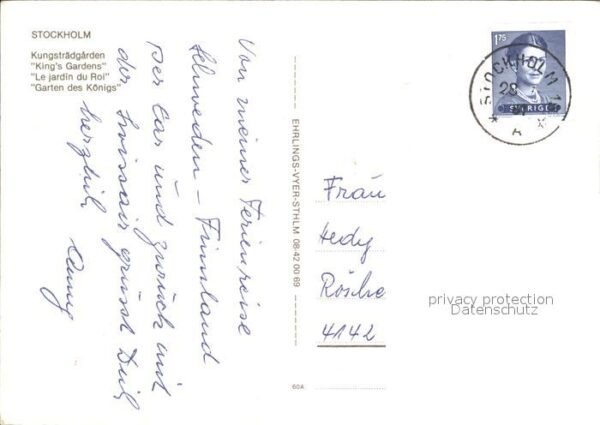 STOCKHOLM
Kungsträdgården
"King's Gardens"
"Le jardin du Roi"
"Garten des Königs"
Von meiner Ferienreise
Schweden - Finnland
per Car und zurück mit
der Swissair grüsst Dich
herzlich
EHRLINGS-VYER-STHLM 08-42 00 69
60A
1.75
SVERIGE
STOCKHOLM 1
28
A
Frau
Hedy
Rösche
4142
privacy protection
Datenschutz